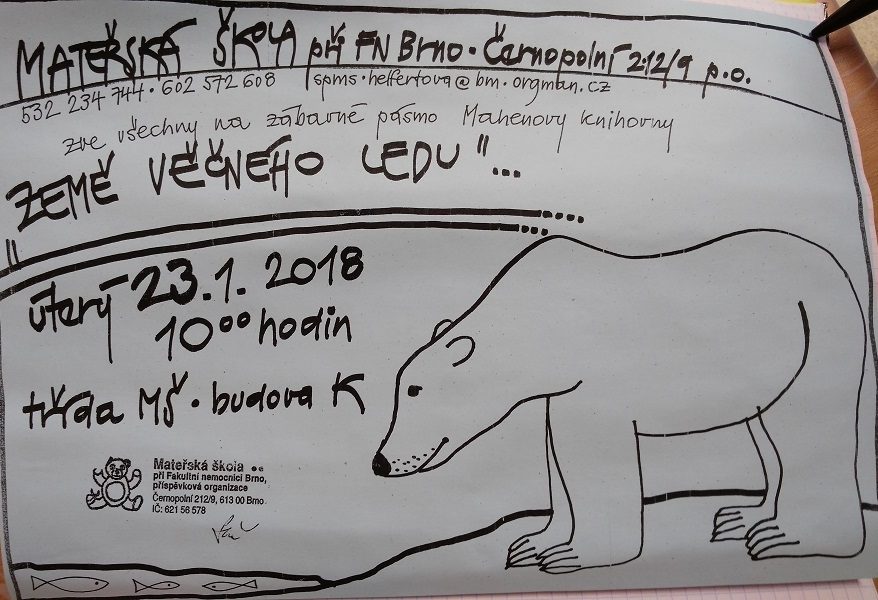 MATEŘSKÁ ŠKOLA při FN Brno · Černopolní 212/9 p.o.
532 234 744 · 602 572 608 spms.helfertova@bm.orgman.cz
zve všechny na zábavné pásmo Mahenovy knihovny
„ZEMĚ VĚČNÉHO LEDU"...
úterý 23.1. 2018
10⁰⁰ hodin
třída MŠ · budova K
Mateřská škola
při Fakultní nemocnici Brno,
příspěvková organizace
Černopolní 212/9, 613 00 Brno
IČ: 621 56 578